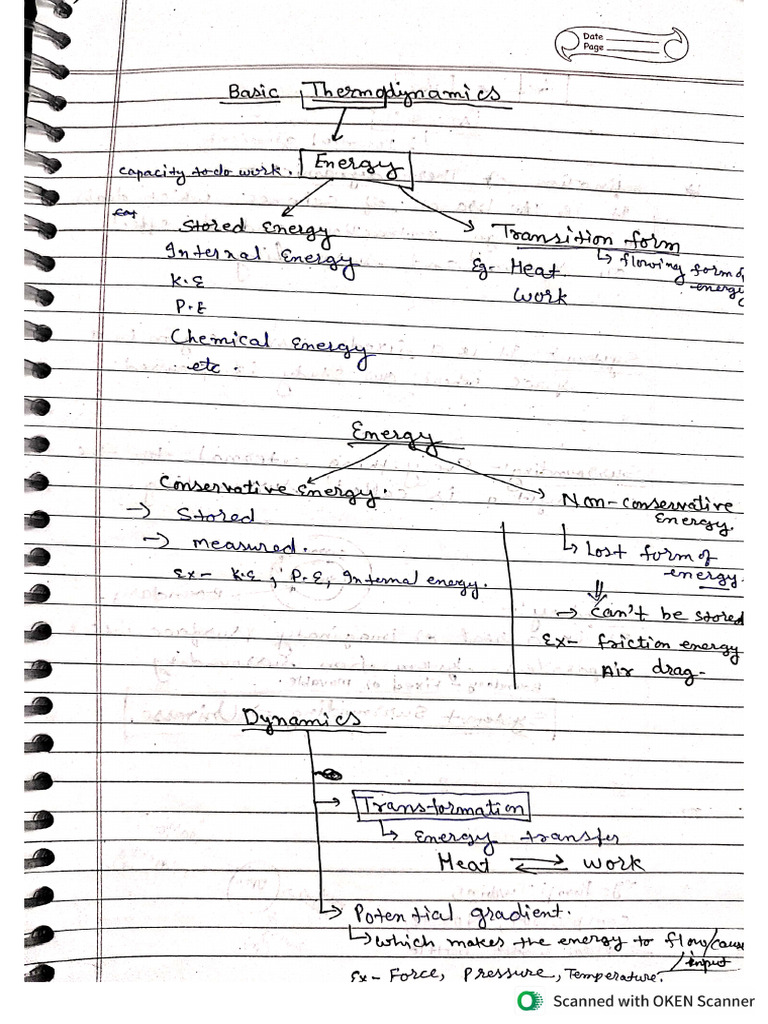 Date
Page
Basic Thermodynamics
capacity to do work. Energy
Stored Energy
Transition form
Internal Energy
↳ flowing form of energy
K.E
Eg- Heat
P.E
Work
Chemical Energy
etc.
Energy
Conservative Energy.
→ Stored
→ measured.
Ex- K.E, P.E, Internal energy.
Non-conservative Energy.
↳ Lost form of energy.
→ Can't be stored
Ex- friction energy
Air drag-
Dynamics
→ Transformation
↳ Energy transfer
Heat ⇌ work
→ Potential gradient.
↳ which makes the energy to flow/cause/input
Ex- Force, Pressure, Temperature.
Scanned with OKEN Scanner